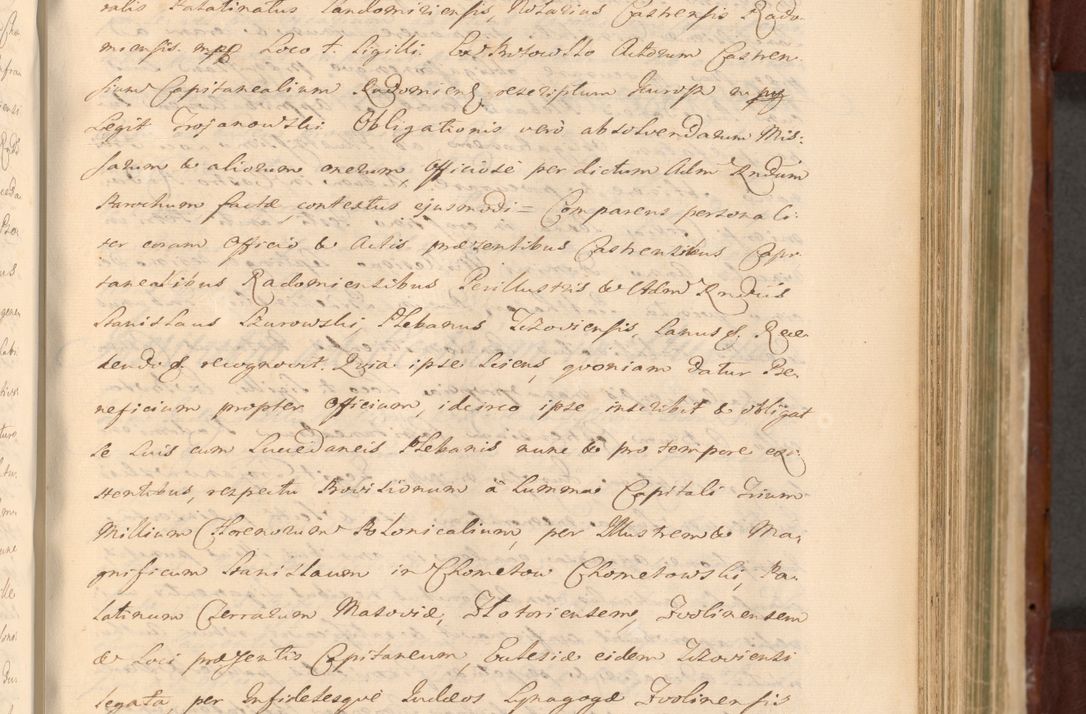 ralis Palatinatus Sandomiriensis, Notarius Castrensis Rado-
miensis mpp Loco + Sigilli Ex Protocollo Actorum Castren-
sium Capitanealium Radomien rescriptum
Legit Trojanowski Obligationis verò absolvendarum Mis-
sarum & aliorum onerum, officiosè per dictum Adm Rndum
Parochum factæ, contextus ejusmodi = Comparens personali-
ter coram Officio & Actis præsentibus Castrensibus Capi-
tanealibus Radomiensibus Perillustris & Adm Rndus
Stanislaus Szurowski, Plebanus Tczoviensis, Sanus & Rece-
dendo & recognovit. Quia ipse Sciens, quoniam datur Be-
neficium propter Officium, idcirco ipse inscribit & obligat
se suis cum Succedaneis Plebanis nunc & pro tempore exi-
stentibus, respectu Provisionum à Summa Capitali Trium
Millium Florenorum Polonicalium, per Illustrem & Ma-
gnificum Stanislaum in Chometow Chometowski, Pa-
latinum Terrarum Masoviæ, Zlotoriensem, Zvolinensem
& Loci præsentis Capitaneum, Ecclesiæ eidem Tczoviensi
legata, per Infidelesque Judæos Synagogæ Zvolinensis